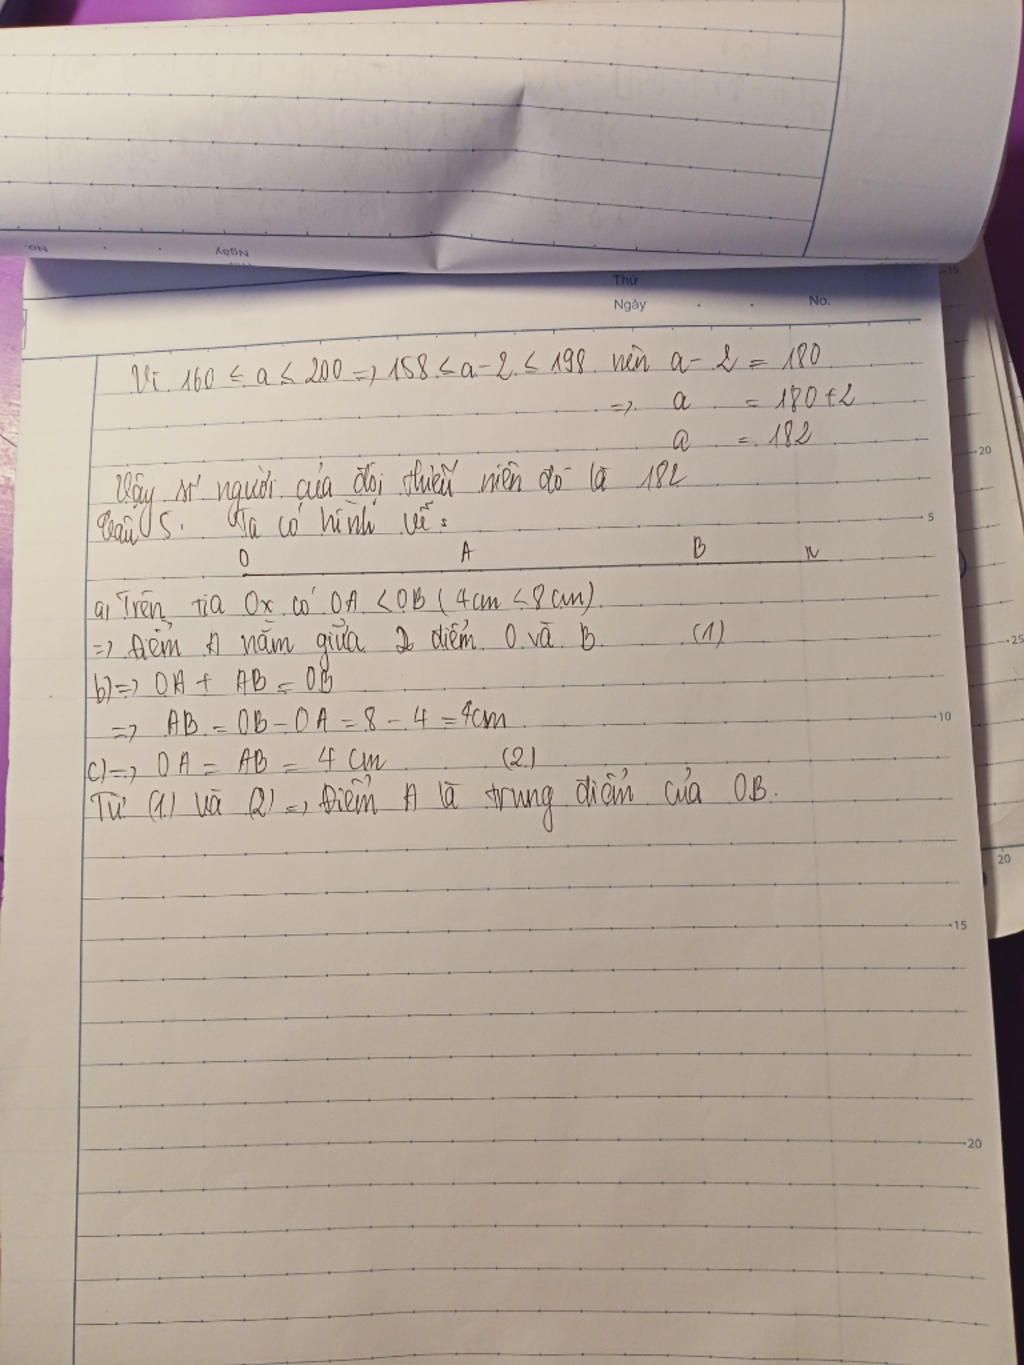 No.
Ngày
15
Thứ
Ngày
No.
Vì 160 ≤ a ≤ 200 => 158 ≤ a - 2 ≤ 198 nên a - 2 = 180
=> a = 180 + 2
a = 182
20
Vậy số người của đội thiếu niên đó là 182
Câu 5. Ta có hình vẽ:
5
O A B x
a, Trên tia Ox có OA < OB (4cm < 8cm)
=> Điểm A nằm giữa 2 điểm O và B (1)
25
b) => OA + AB = OB
=> AB = OB - OA = 8 - 4 = 4cm
10
c) => OA = AB = 4 cm (2)
Từ (1) và (2) => Điểm A là trung điểm của OB.
20
15
20